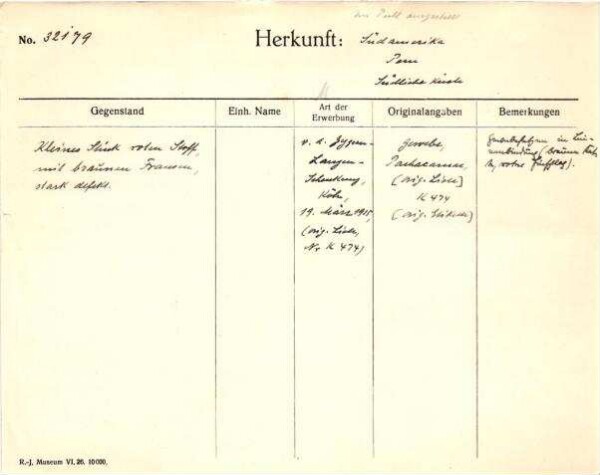 im Pult ausgestellt
No. 32179
Herkunft: Südamerika
Peru
Südliche Küste
Gegenstand
Einh. Name
Art der Erwerbung
Originalangaben
Bemerkungen
Kleines Stück roten Stoff,
mit braunen Fransen,
stark defekt.
v. d. Zypen-
Langen-
Schenkung,
Köln,
19. März 1915,
(orig. Liste,
Nr K 474)
Gewebe,
Pachacamac,
(orig. Liste)
K 474
(orig. Etikette)
Gewebefetzen in Lein-
wandbindung (braune Kette,
roter